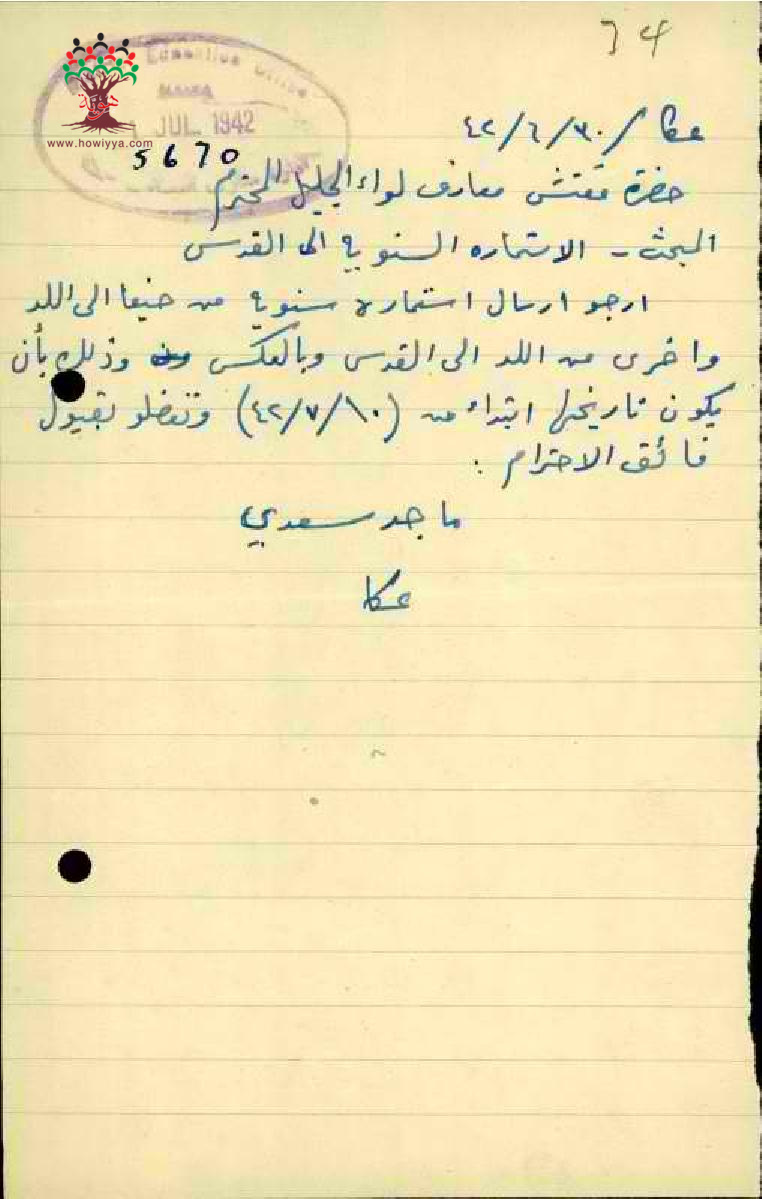 74
Education Office
JUL. 1942
هوية
www.howiyya.com
5670
عكا / ٣٠/٦/٤٢
حضرة مفتش معارف لواء الجليل المحترم
المبحث - الاستماره السنويه الى القدس
ارجو ارسال استمارة سنويه من حيفا الى اللد
واخرى من اللد الى القدس وبالعكس وذلك بأن
يكون تاريخها ابتداء من (٤٢/٧/١٠) وتفضلو بقبول
فائق الاحترام :
ماجد سعدي
عكا